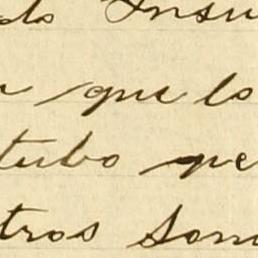 do Insu
que lo
tubo que
tros son